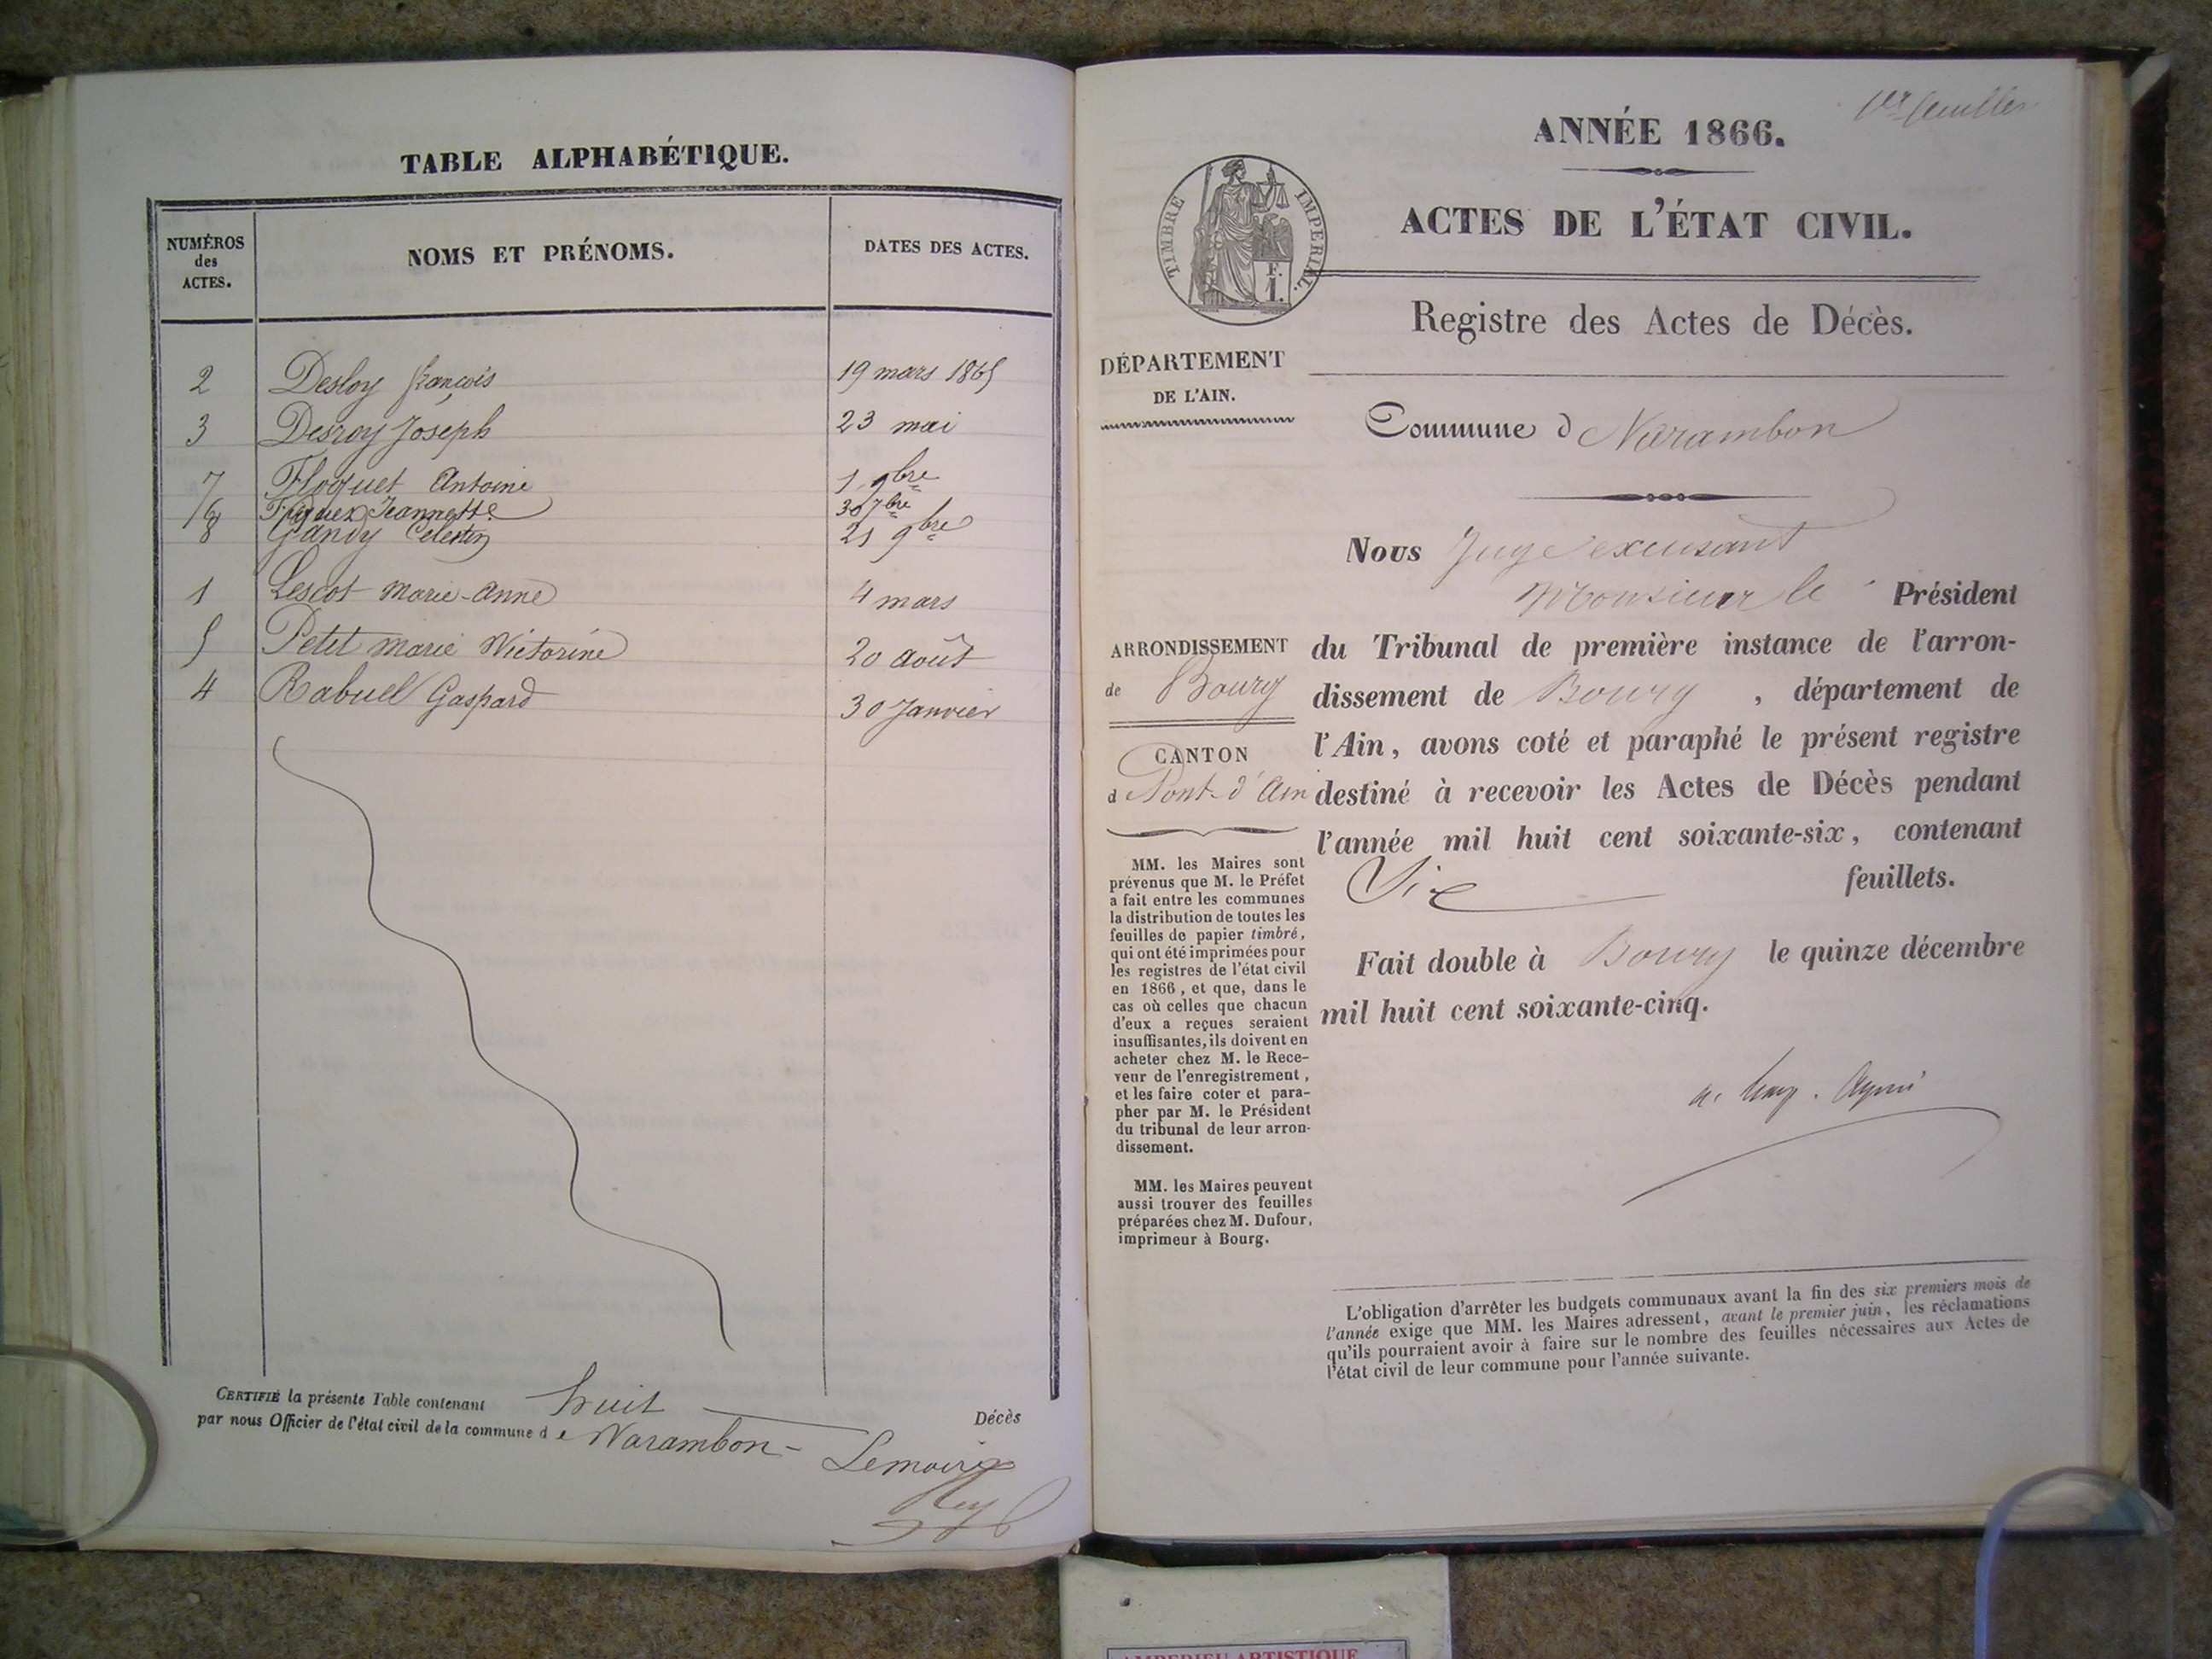 TABLE ALPHABÉTIQUE.
NUMÉROS des ACTES.
NOMS ET PRÉNOMS.
DATES DES ACTES.
2 Desloy françois 19 mars 1865
3 Desroy Joseph 23 mai
7 Floquet Antoine 1 9bre
6 Jeannette 30 7bre
8 Gandy Celestin 21 9bre
1 Lescot Marie-Anne 4 mars
5 Petit marie Victorine 20 Août
4 Rabuel Gaspard 30 Janvier
CERTIFIÉ la présente Table contenant huit Décès
par nous Officier de l'état civil de la commune de Varambon -
Lemaire
1er feuillet
ANNÉE 1866.
TIMBRE IMPERIAL.
F.
1.
ACTES DE L'ÉTAT CIVIL.
Registre des Actes de Décès.
DÉPARTEMENT
DE L'AIN.
Commune d Varambon
Nous Juge excusant
Monsieur le Président
du Tribunal de première instance de l'arron-
dissement de Bourg , département de
l'Ain, avons coté et paraphé le présent registre
destiné à recevoir les Actes de Décès pendant
l'année mil huit cent soixante-six, contenant
Six feuillets.
Fait double à Bourg le quinze décembre
mil huit cent soixante-cinq.
ARRONDISSEMENT
de Bourg
CANTON
d Pont-d'Ain
MM. les Maires sont
prévenus que M. le Préfet
a fait entre les communes
la distribution de toutes les
feuilles de papier timbré,
qui ont été imprimées pour
les registres de l'état civil
en 1866, et que, dans le
cas où celles que chacun
d'eux a reçues seraient
insuffisantes, ils doivent en
acheter chez M. le Rece-
veur de l'enregistrement,
et les faire coter et para-
pher par M. le Président
du tribunal de leur arron-
dissement.
MM. les Maires peuvent
aussi trouver des feuilles
préparées chez M. Dufour,
imprimeur à Bourg.
L'obligation d'arrêter les budgets communaux avant la fin des six premiers mois de
l'année exige que MM. les Maires adressent, avant le premier juin, les réclamations
qu'ils pourraient avoir à faire sur le nombre des feuilles nécessaires aux Actes de
l'état civil de leur commune pour l'année suivante.
ARTISTIQUE